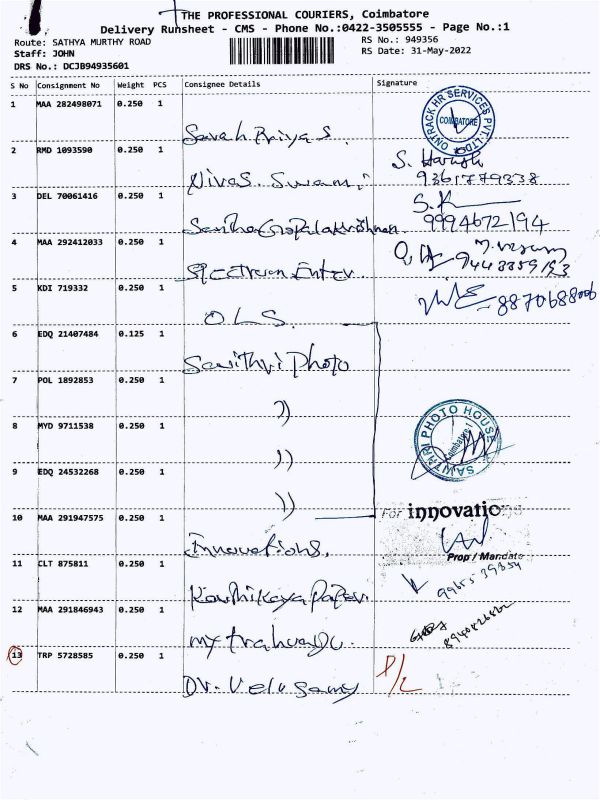 THE PROFESSIONAL COURIERS, Coimbatore
Delivery Runsheet - CMS - Phone No.:0422-3505555 - Page No.:1
Route: SATHYA MURTHY ROAD
RS No.: 949356
Staff: JOHN
RS Date: 31-May-2022
DRS No.: DCJB94935601
S No Consignment No Weight PCS Consignee Details Signature
1 MAA 282498071 0.250 1
ONTRACK HR SERVICES PVT. LTD.
COIMBATORE
Sarah Priya S.
2 RMD 1093590 0.250 1
S. Harish
9361779338
Nivas. Swami
3 DEL 70061416 0.250 1
S.K
9994672194
Santha Gopalakrishnan
4 MAA 292412033 0.250 1
Spectrum Enter
5 KDI 719332 0.250 1
8870688006
O.L.S.
6 EDQ 21407484 0.125 1
Savithri Photo
7 POL 1892853 0.250 1
))
8 MYD 9711538 0.250 1
PHOTO HOUSE
Coimbatore-1
))
9 EDQ 24532268 0.250 1
))
10 MAA 291947575 0.250 1
For innovatio
Innovations.
Prop / Mandate
11 CLT 875811 0.250 1
Karthikeya Papers
12 MAA 291846943 0.250 1
13 TRP 5728585 0.250 1
P/L
Dr. Velusamy